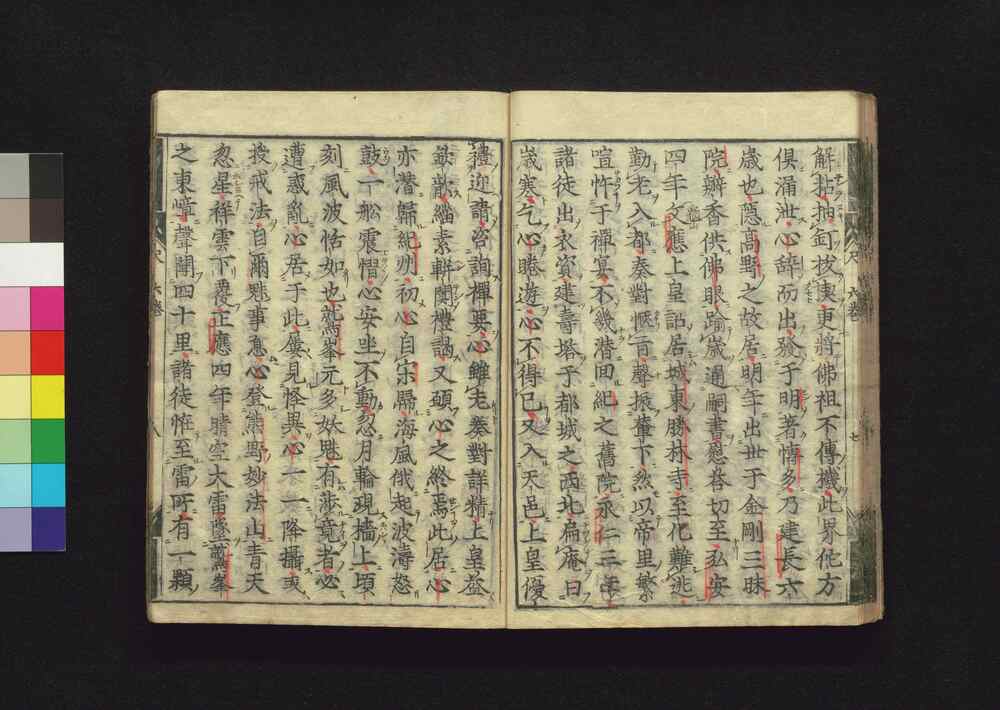 解拈抽釘拔楔更將佛祖不傳機此界佗方
俱漏泄心辞而出發于明著情多乃建長六
歳也隠高野之故居明年出世于金剛三昧
院辨香供佛眼踰歳通嗣書懇答切至弘安
四年文應上皇詔居城東勝林寺至化難逃
勤老入都奏對愜旨聲振輦下然以帝里繁
喧忤于禪宴不幾潜回紀之舊院永仁三
諸徒出衣資建壽塔于都城之西北扁庵曰
歳寒乞心睠遊心不得已又入天邑上皇優
禮迎諸咨詢禪要心雖老奏對詳精上皇益
欽敵緇素軿闐禮謁又碩心之終焉此居心
亦潜歸紀州初心自宋歸海風俄起波濤怒
鼓一舩震慴心安坐不動忽月輪現檣上頃
刻風波恬如也鷲峯元多妖魅有渉竟者必
遭惑亂心居于此屢見怪異心一一降攝或
授戒法自爾魅事息心登熊野妙法山青天
忽星祥雲下覆正應四年晴空大雷墜鷲峯
之東嶂聲聞四十里諸徒惟至雷所有一顆